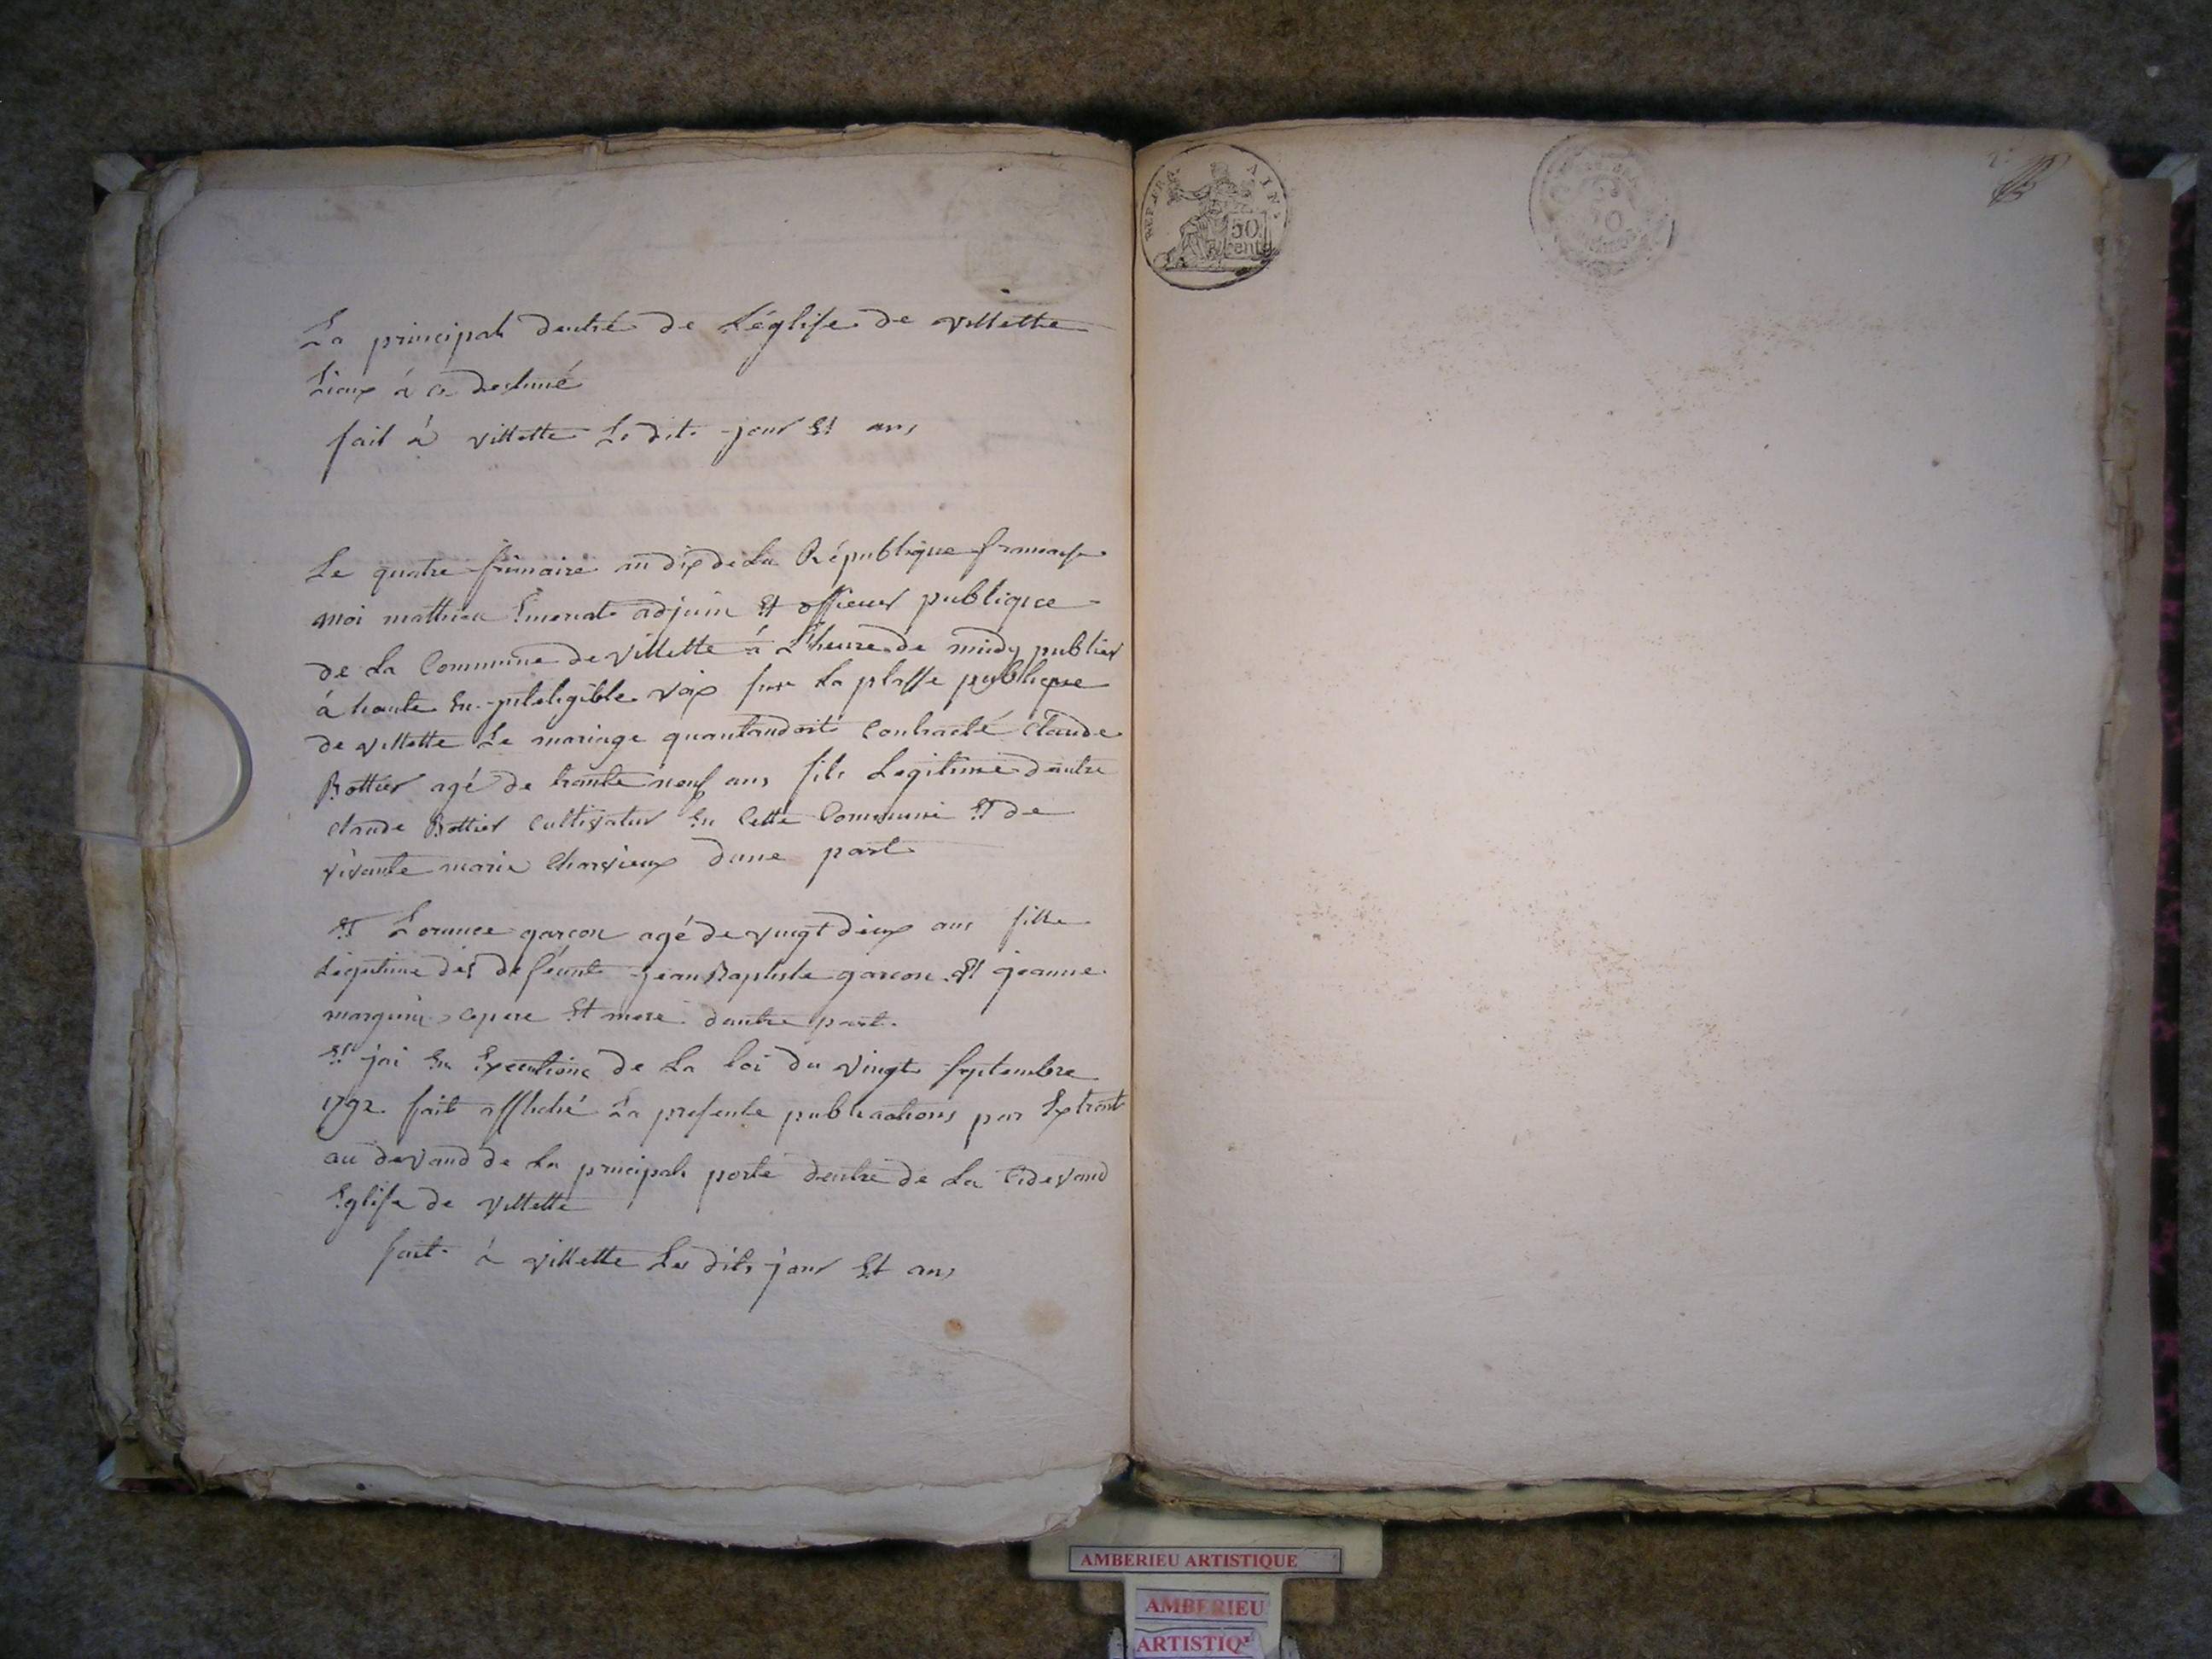 La principale dentré de Léglise de villette
Lieux à ce destiné
fait à villette Le dit jour Et ans
Le quatre frimaire an dix de La République francaise
moi mathieu adjoin Et officier publique
de La Commune de villette à L'heure de midy publier
à haute En inteligible voix sur La plasse publique
de villette Le mariage quantandoit contracté Claude
Bottier agé de trante neuf ans fils Legitime dentre
claude Bottier cultivateur En Cette Commune Et de
vivante marie Charvieux dune part
Et Lorance garcon agé de vingt deux ans fille
Legitime des deféunt jean Baptiste garcon Et jeanne
pere Et mere dautre part.
Et jai En Exeqution de La loi du vingt septembre
1792 fait affiché La presente publications par Extrait
au devand de La principale porte dentre de La Cidevand
Eglise de villette
fait à villette Les dits jour Et ans
REP. FRA. AIN.
50
Cent
2e
AMBERIEU ARTISTIQUE
AMBERIEU
ARTISTIQ